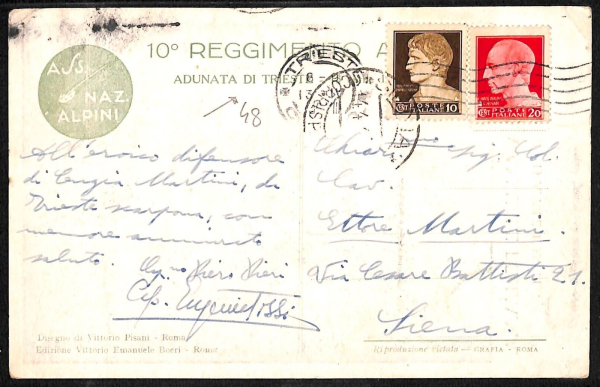 ASS.
NAZ.
ALPINI
10° REGGIMENTO A
ADUNATA DI TRIESTE
48
TRIESTE
POSTE
ITALIANE 10
POSTE
ITALIANE 20
All'eroico difensore
di Cengia Martini, da
Trieste scarpona, con
memore ammirato
saluto.
Piero Pieri
Cap. Eugenio Tossi
Chiar.mo Sig. Col.
Cav.
Ettore Martini
Via Cesare Battisti 21
Siena
Disegno di Vittorio Pisani - Roma
Edizione Vittorio Emanuele Boeri - Roma
Riproduzione vietata — GRAFIA - ROMA